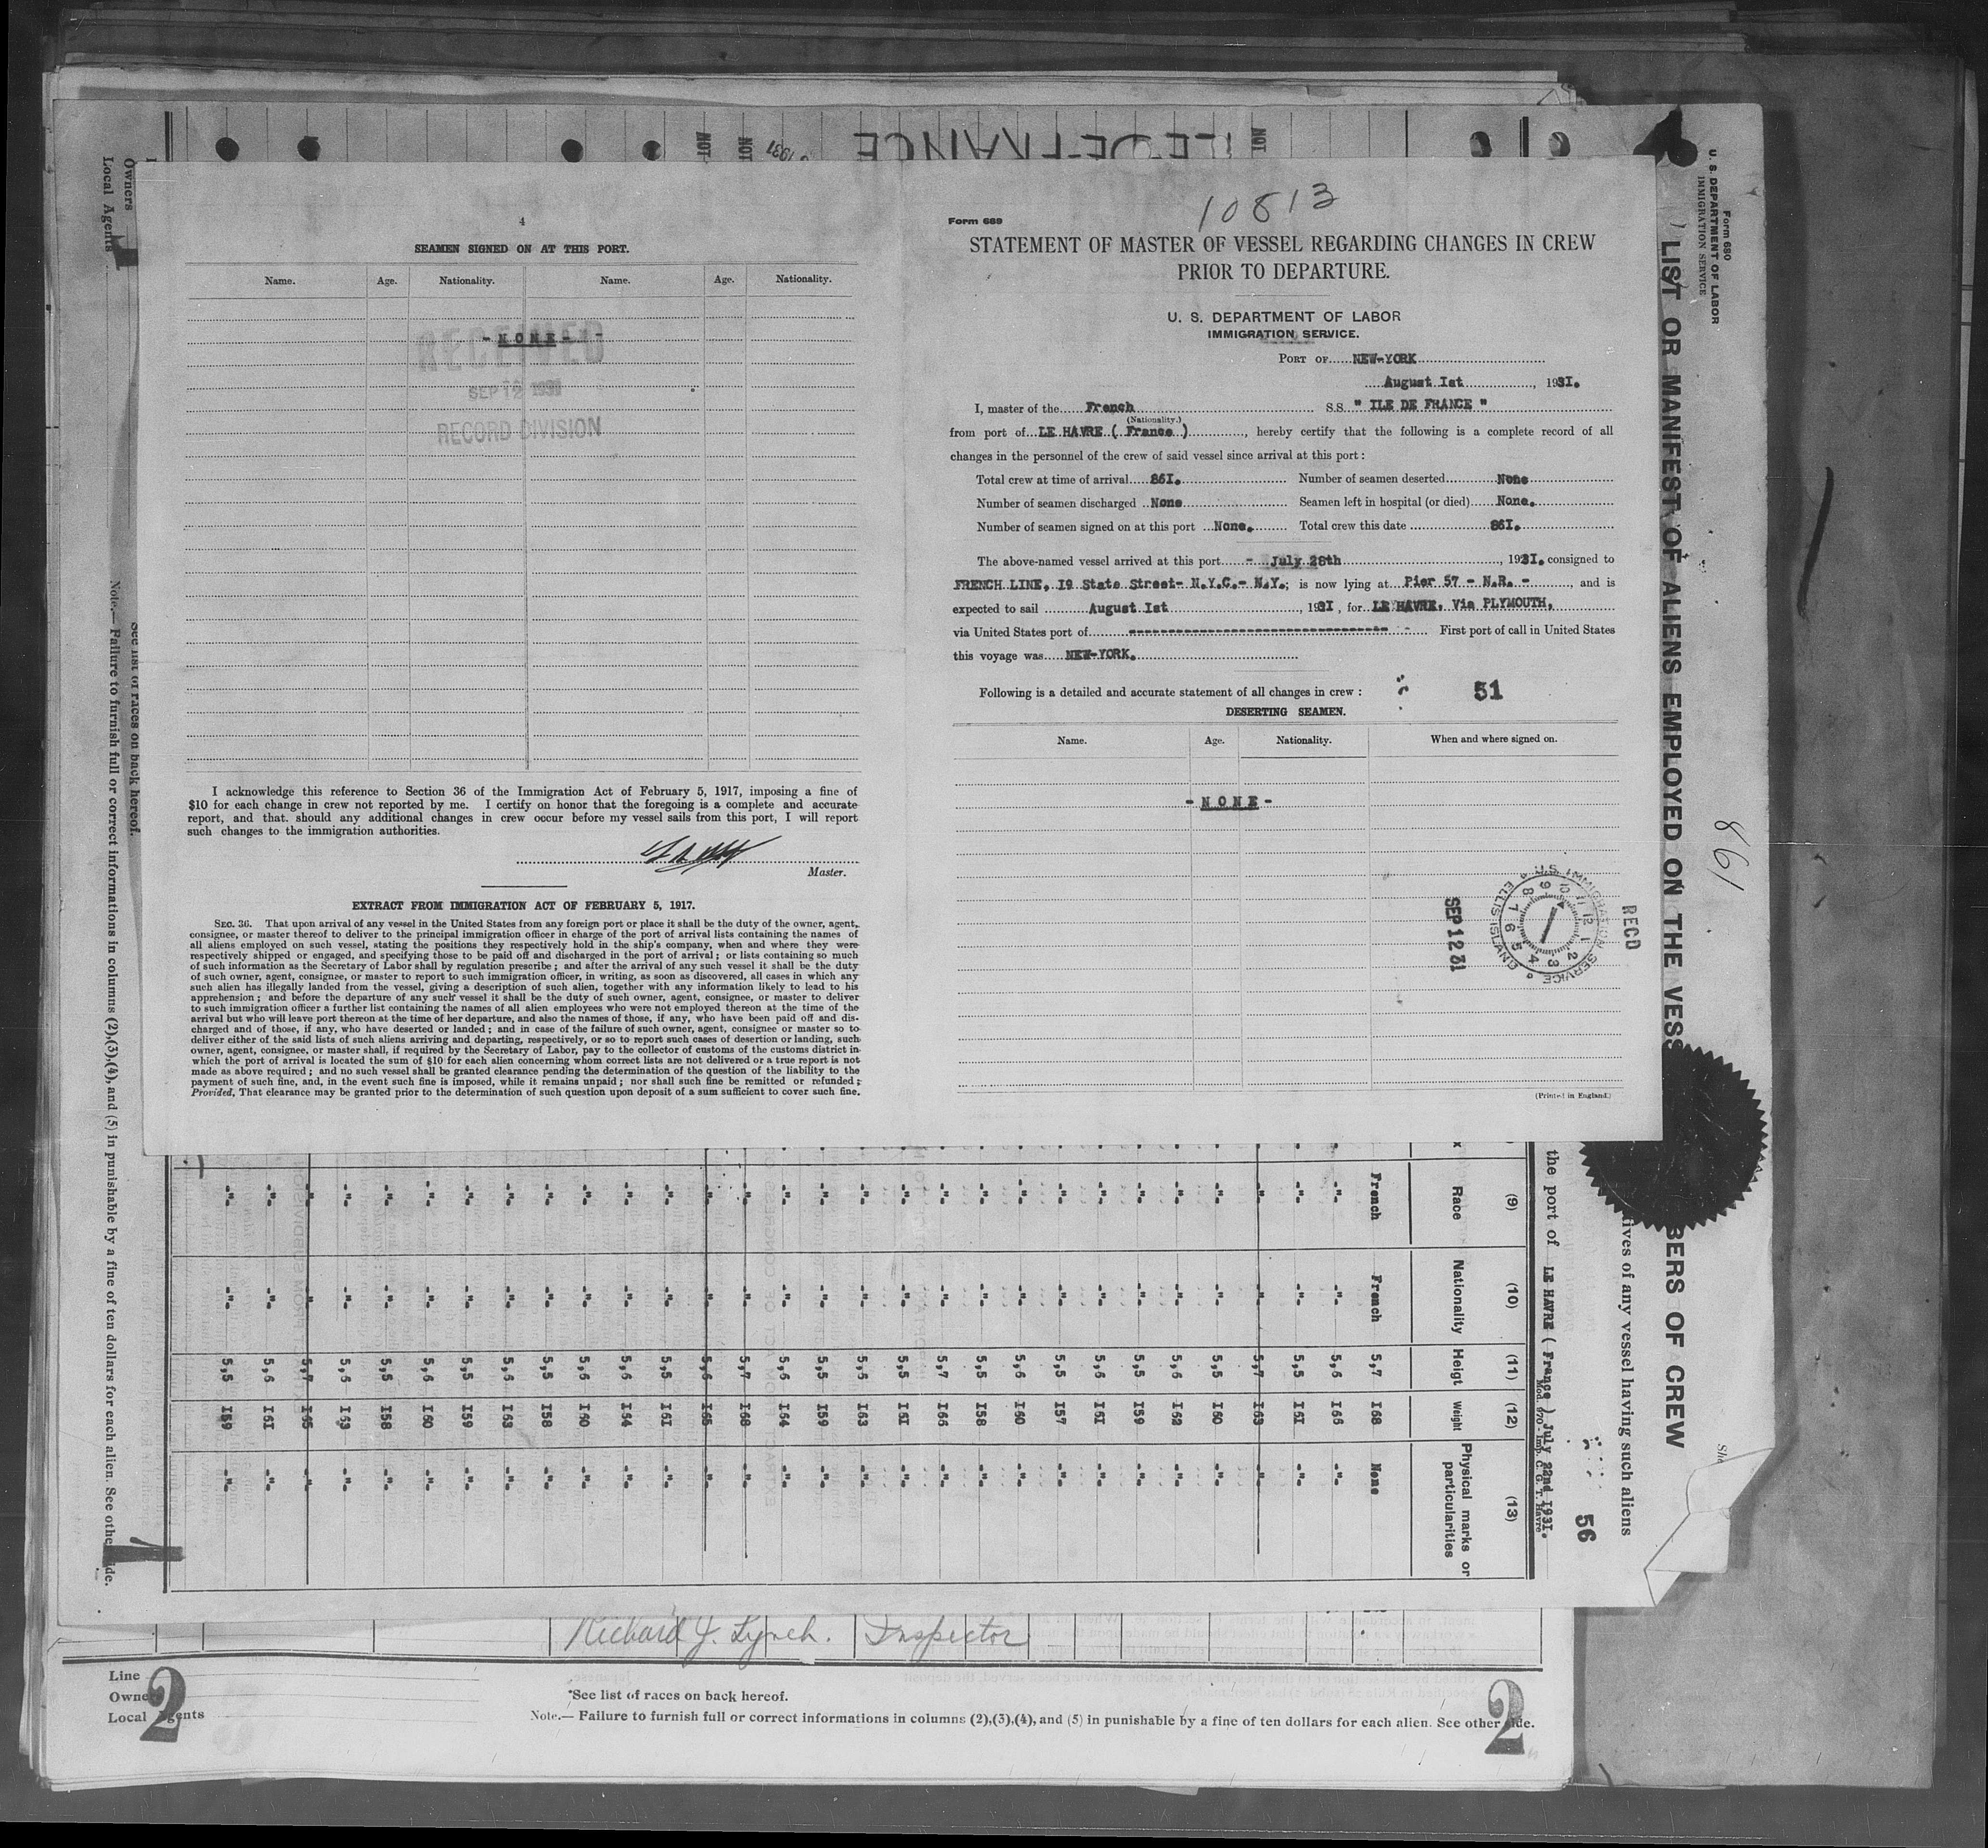 ILE DE FRANCE
NOT
NOT
NOT
1931
4
SEAMEN SIGNED ON AT THIS PORT.
Name. Age. Nationality. Name. Age. Nationality.
- N O N E - -
RECEIVED
SEP 12 1931
RECORD DIVISION
I acknowledge this reference to Section 36 of the Immigration Act of February 5, 1917, imposing a fine of
$10 for each change in crew not reported by me. I certify on honor that the foregoing is a complete and accurate
report, and that. should any additional changes in crew occur before my vessel sails from this port, I will report
such changes to the immigration authorities.
Master.
EXTRACT FROM IMMIGRATION ACT OF FEBRUARY 5, 1917.
SEC. 36. That upon arrival of any vessel in the United States from any foreign port or place it shall be the duty of the owner, agent,
consignee, or master thereof to deliver to the principal immigration officer in charge of the port of arrival lists containing the names of
all aliens employed on such vessel, stating the positions they respectively hold in the ship's company, when and where they were
respectively shipped or engaged, and specifying those to be paid off and discharged in the port of arrival; or lists containing so much
of such information as the Secretary of Labor shall by regulation prescribe; and after the arrival of any such vessel it shall be the duty
of such owner, agent, consignee, or master to report to such immigration officer, in writing, as soon as discovered, all cases in which any
such alien has illegally landed from the vessel, giving a description of such alien, together with any information likely to lead to his
apprehension; and before the departure of any such vessel it shall be the duty of such owner, agent, consignee, or master to deliver
to such immigration officer a further list containing the names of all alien employees who were not employed thereon at the time of the
arrival but who will leave port thereon at the time of her departure, and also the names of those, if any, who have been paid off and dis-
charged and of those, if any, who have deserted or landed; and in case of the failure of such owner, agent, consignee or master so to
deliver either of the said lists of such aliens arriving and departing, respectively, or so to report such cases of desertion or landing, such
owner, agent, consignee, or master shall, if required by the Secretary of Labor, pay to the collector of customs of the customs district in
which the port of arrival is located the sum of $10 for each alien concerning whom correct lists are not delivered or a true report is not
made as above required; and no such vessel shall be granted clearance pending the determination of the question of the liability to the
payment of such fine, and, in the event such fine is imposed, while it remains unpaid; nor shall such fine be remitted or refunded;
Provided, That clearance may be granted prior to the determination of such question upon deposit of a sum sufficient to cover such fine.
10813
Form 689
STATEMENT OF MASTER OF VESSEL REGARDING CHANGES IN CREW
PRIOR TO DEPARTURE.
U. S. DEPARTMENT OF LABOR
IMMIGRATION SERVICE.
PORT OF NEW-YORK
August Ist, 193I.
I, master of the French S.S. " ILE DE FRANCE "
(Nationality.)
from port of LE HAVRE ( France ), hereby certify that the following is a complete record of all
changes in the personnel of the crew of said vessel since arrival at this port:
Total crew at time of arrival 86I. Number of seamen deserted None
Number of seamen discharged None Seamen left in hospital (or died) None.
Number of seamen signed on at this port None. Total crew this date 86I.
The above-named vessel arrived at this port - July 28th, 193I. consigned to
FRENCH LINE, I9 State Street- N.Y.C.- N.Y.; is now lying at Pier 57 - N.R. -, and is
expected to sail August Ist, 193I, for LE HAVRE, Via PLYMOUTH,
via United States port of First port of call in United States
this voyage was NEW-YORK.
Following is a detailed and accurate statement of all changes in crew:
51
DESERTING SEAMEN.
Name. Age. Nationality. When and where signed on.
- N O N E -
RECD
U.S. IMMIGRATION SERVICE
ELLIS ISLAND
SEP 12 31
(Printed in England.)
Form 680
U. S. DEPARTMENT OF LABOR
IMMIGRATION SERVICE
LIST OR MANIFEST OF ALIENS EMPLOYED ON THE VESS
BERS OF CREW
861
tives of any vessel having such aliens
56
the port of LE HAVRE ( France ) July 22nd I93I.
Mod. 970 - Imp. C. G. T. Havre
(9) (10) (11) (12) (13)
Race Nationality Heigt Weight Physical marks or particularities
French French 5,7 I68 None
-"- -"- 5,6 I66 -"-
-"- -"- 5,5 I6I -"-
-"- -"- 5,7 I63 -"-
-"- -"- 5,5 I60 -"-
-"- -"- 5,6 I62 -"-
-"- -"- 5,5 I59 -"-
-"- -"- 5,6 I6I -"-
-"- -"- 5,5 I57 -"-
-"- -"- 5,6 I60 -"-
-"- -"- 5,5 I58 -"-
-"- -"- 5,7 I66 -"-
-"- -"- 5,5 I6I -"-
-"- -"- 5,6 I63 -"-
-"- -"- 5,5 I59 -"-
-"- -"- 5,6 I64 -"-
-"- -"- 5,7 I68 -"-
-"- -"- 5,6 I65 -"-
-"- -"- 5,5 I6I -"-
-"- -"- 5,6 I64 -"-
-"- -"- 5,6 I60 -"-
-"- -"- 5,5 I58 -"-
-"- -"- 5,6 I63 -"-
-"- -"- 5,5 I59 -"-
-"- -"- 5,6 I60 -"-
-"- -"- 5,5 I58 -"-
-"- -"- 5,6 I63 -"-
-"- -"- 5,7 I65 -"-
-"- -"- 5,6 I6I -"-
-"- -"- 5,5 I59 -"-
Owners
Local Agents
See list of races on back hereof.
Note.— Failure to furnish full or correct informations in columns (2),(3),(4), and (5) in punishable by a fine of ten dollars for each alien. See other side.
Richard J. Lynch. Inspector
Line
Owners
Local Agents
2
*See list of races on back hereof.
Note.— Failure to furnish full or correct informations in columns (2),(3),(4), and (5) in punishable by a fine of ten dollars for each alien. See other side.
2